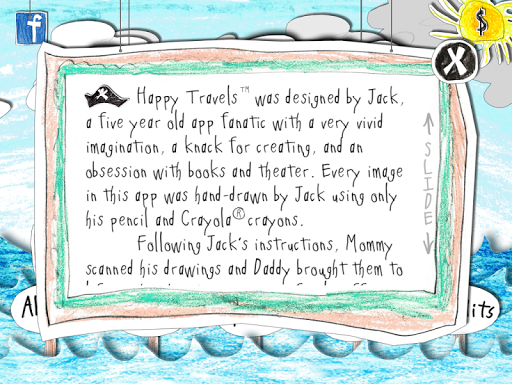 f
$
X
Happy Travels™ was designed by Jack,
a five year old app fanatic with a very vivid
imagination, a knack for creating, and an
obsession with books and theater. Every image
in this app was hand-drawn by Jack using only
his pencil and Crayola® crayons.
Following Jack's instructions, Mommy
scanned his drawings and Daddy brought them to
SLIDE